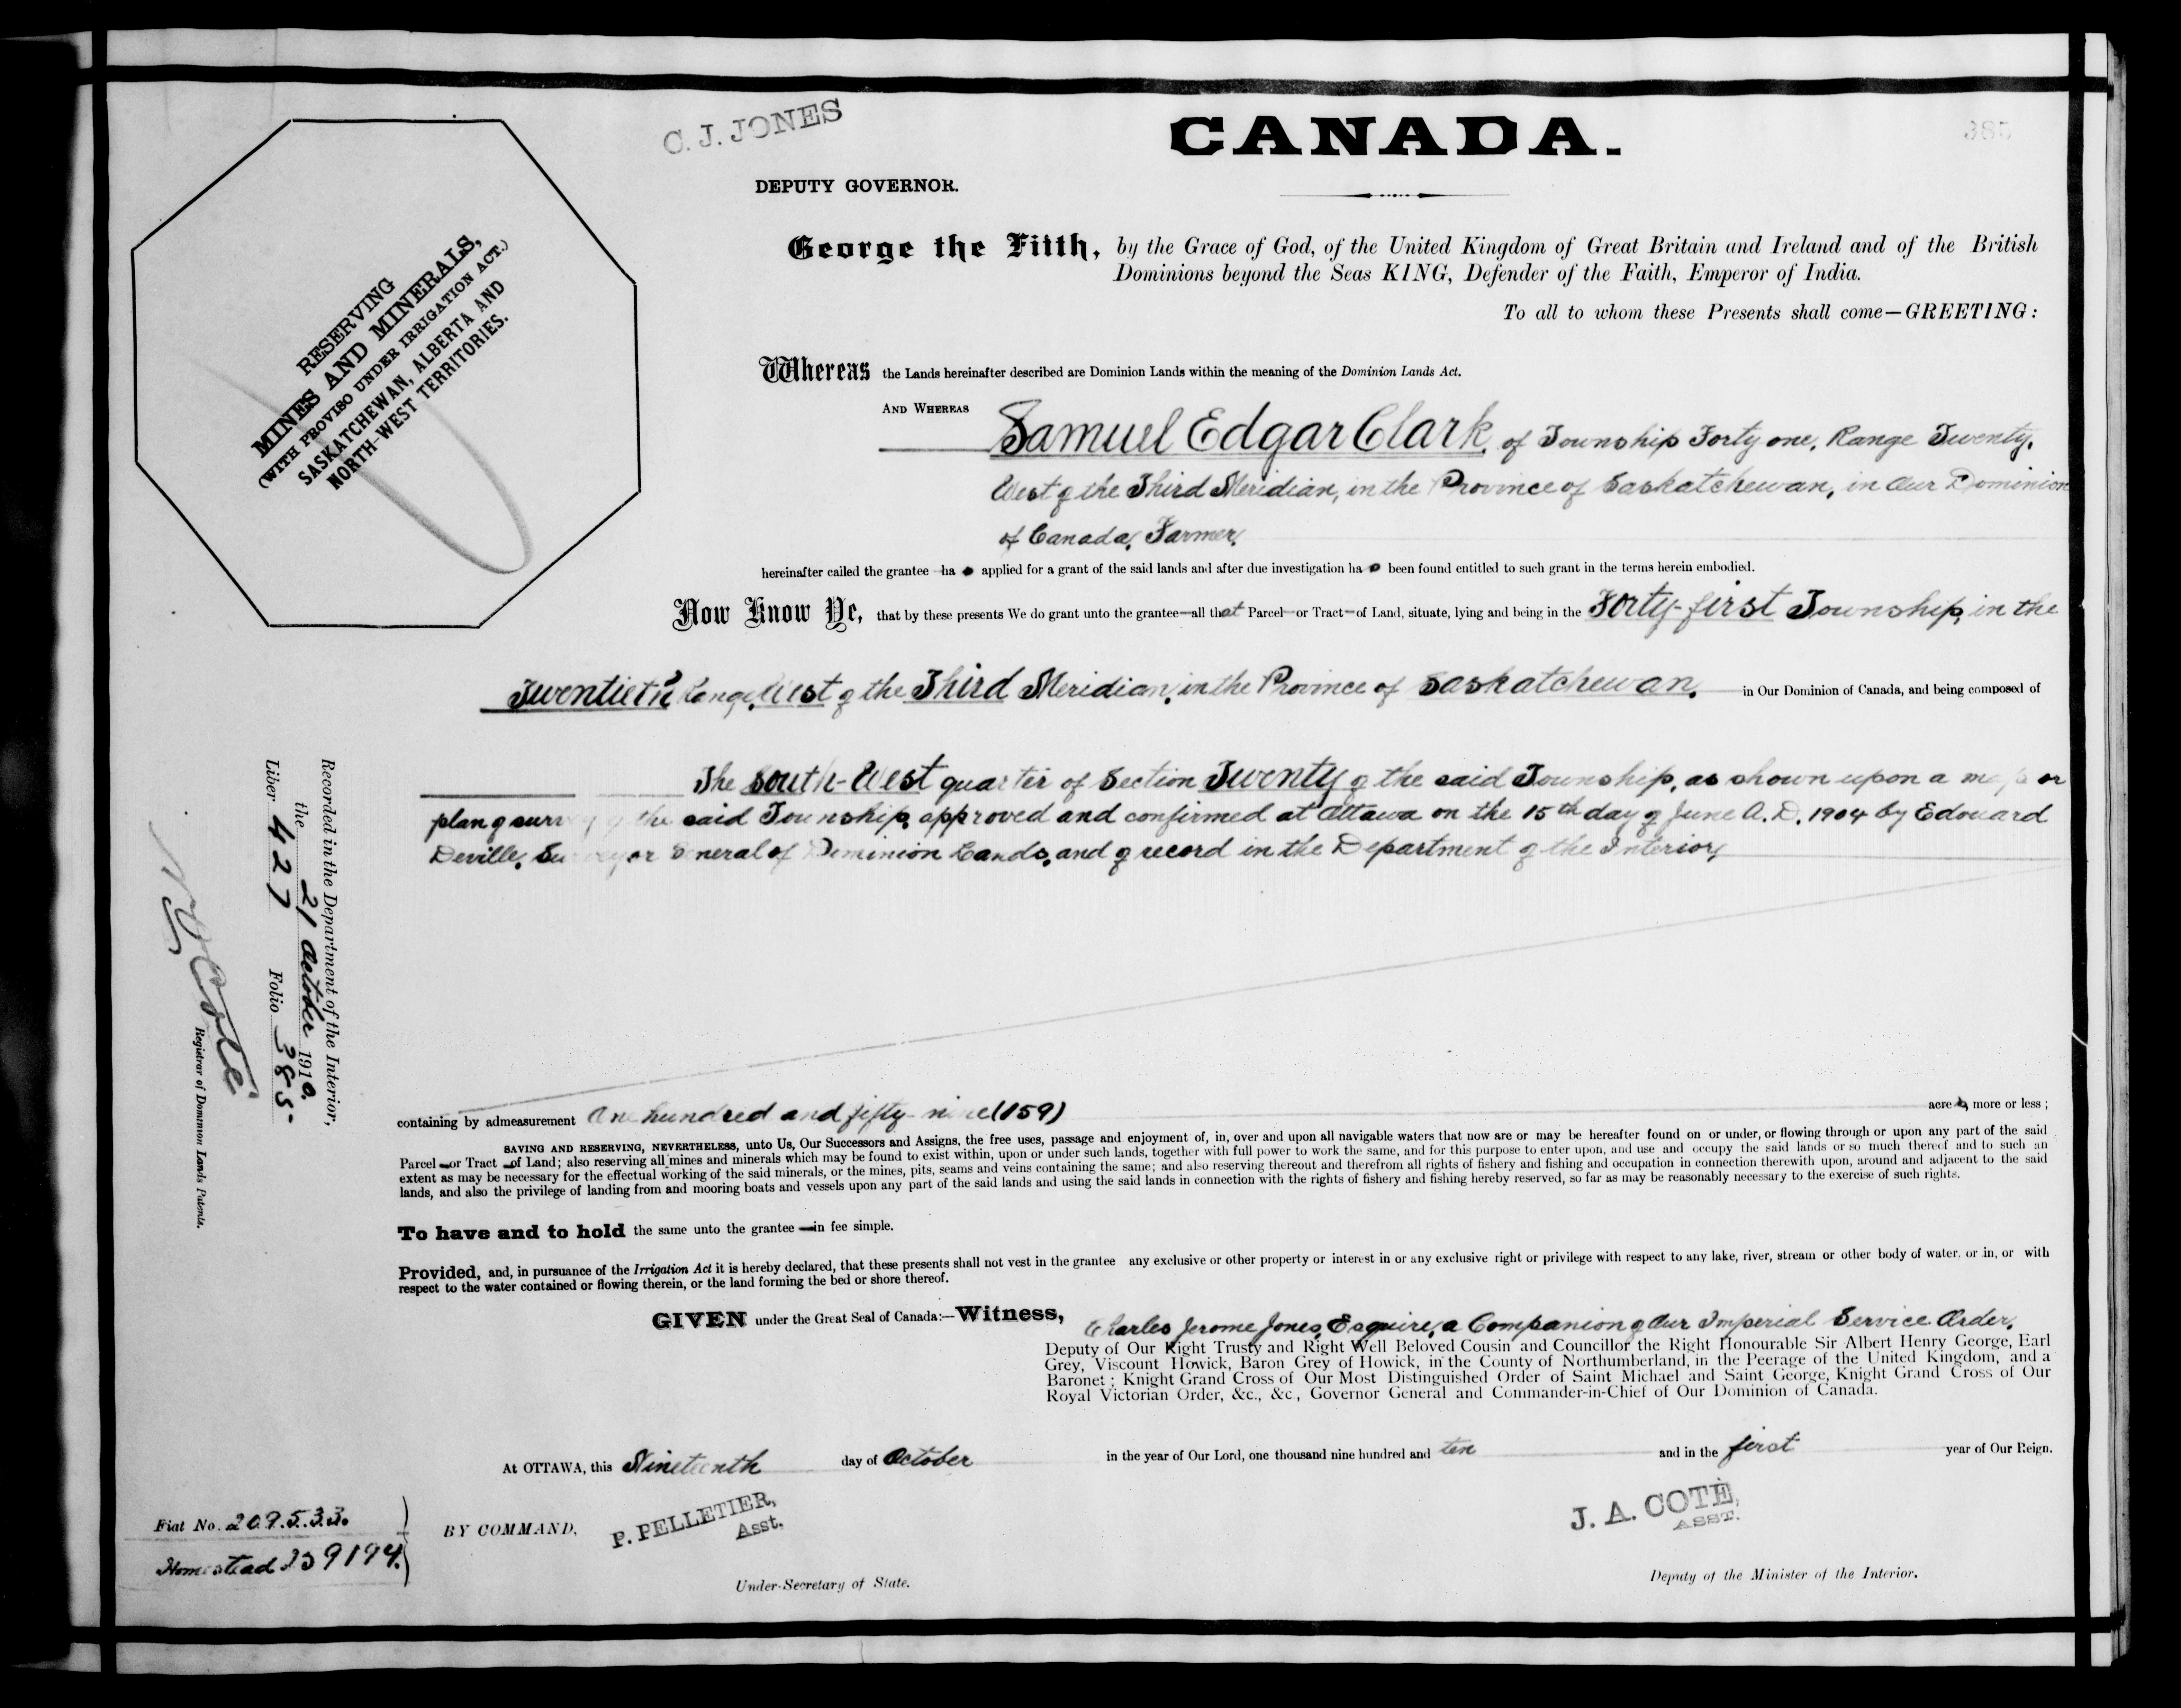 C. J. JONES
CANADA.
385
DEPUTY GOVERNOR.
RESERVING
MINES AND MINERALS,
(WITH PROVISO UNDER IRRIGATION ACT.)
SASKATCHEWAN, ALBERTA AND
NORTH-WEST TERRITORIES.
George the Fifth, by the Grace of God, of the United Kingdom of Great Britain and Ireland and of the British
Dominions beyond the Seas KING, Defender of the Faith, Emperor of India.
To all to whom these Presents shall come—GREETING:
Whereas the Lands hereinafter described are Dominion Lands within the meaning of the Dominion Lands Act.
AND WHEREAS Samuel Edgar Clark, of Township Forty one, Range Twenty,
West of the Third Meridian, in the Province of Saskatchewan, in Our Dominion
of Canada, Farmer,
hereinafter called the grantee ha s applied for a grant of the said lands and after due investigation ha s been found entitled to such grant in the terms herein embodied.
Now Know Ye, that by these presents We do grant unto the grantee—all that Parcel—or Tract—of Land, situate, lying and being in the Forty-first Township, in the
Twentieth Range, West of the Third Meridian, in the Province of Saskatchewan, in Our Dominion of Canada, and being composed of
The South-West quarter of Section Twenty of the said Township, as shown upon a map or
plan of survey of the said Township, approved and confirmed at Ottawa on the 15th day of June A.D. 1904 by Edouard
Deville, Surveyor General of Dominion Lands, and of record in the Department of the Interior,
containing by admeasurement One hundred and fifty-nine (159) acres, more or less;
SAVING AND RESERVING, NEVERTHELESS, unto Us, Our Successors and Assigns, the free uses, passage and enjoyment of, in, over and upon all navigable waters that now are or may be hereafter found on or under, or flowing through or upon any part of the said
Parcel—or Tract—of Land; also reserving all mines and minerals which may be found to exist within, upon or under such lands, together with full power to work the same, and for this purpose to enter upon, and use and occupy the said lands or so much thereof and to such an
extent as may be necessary for the effectual working of the said minerals, or the mines, pits, seams and veins containing the same; and also reserving thereout and therefrom all rights of fishery and fishing and occupation in connection therewith upon, around and adjacent to the said
lands, and also the privilege of landing from and mooring boats and vessels upon any part of the said lands and using the said lands in connection with the rights of fishery and fishing hereby reserved, so far as may be reasonably necessary to the exercise of such rights.
To have and to hold the same unto the grantee—in fee simple.
Provided, and, in pursuance of the Irrigation Act it is hereby declared, that these presents shall not vest in the grantee any exclusive or other property or interest in or any exclusive right or privilege with respect to any lake, river, stream or other body of water. or in, or with
respect to the water contained or flowing therein, or the land forming the bed or shore thereof.
GIVEN under the Great Seal of Canada:—Witness, Charles Jerome Jones, Esquire, a Companion of Our Imperial Service Order,
Deputy of Our Right Trusty and Right Well Beloved Cousin and Councillor the Right Honourable Sir Albert Henry George, Earl
Grey, Viscount Howick, Baron Grey of Howick, in the County of Northumberland, in the Peerage of the United Kingdom, and a
Baronet; Knight Grand Cross of Our Most Distinguished Order of Saint Michael and Saint George, Knight Grand Cross of Our
Royal Victorian Order, &c., &c., Governor General and Commander-in-Chief of Our Dominion of Canada.
At OTTAWA, this Nineteenth day of October in the year of Our Lord, one thousand nine hundred and ten and in the first year of Our Reign.
BY COMMAND,
P. PELLETIER,
Asst.
Under-Secretary of State.
J. A. COTÉ,
ASST.
Deputy of the Minister of the Interior.
Recorded in the Department of the Interior,
the 21 October 1910.
Liber 427 Folio 385.
Registrar of Dominion Lands Patents.
Fiat No. 209533.
Homestead 139194.